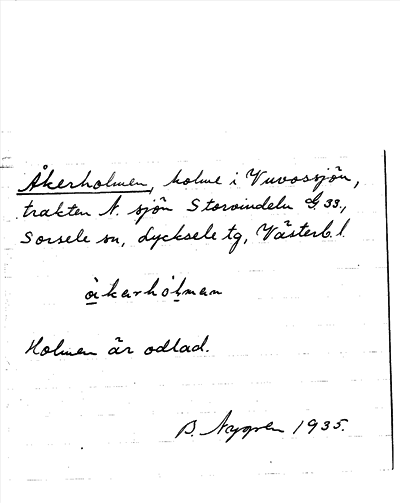 Åkerholmen, holme i Vuvossjön,
trakten N. sjön Storvindeln G. 33.,
Sorsele sn, Lycksele tg, Västerb. l.
åkarhòlman
Holmen är odlad.
B. Nygren 1935.